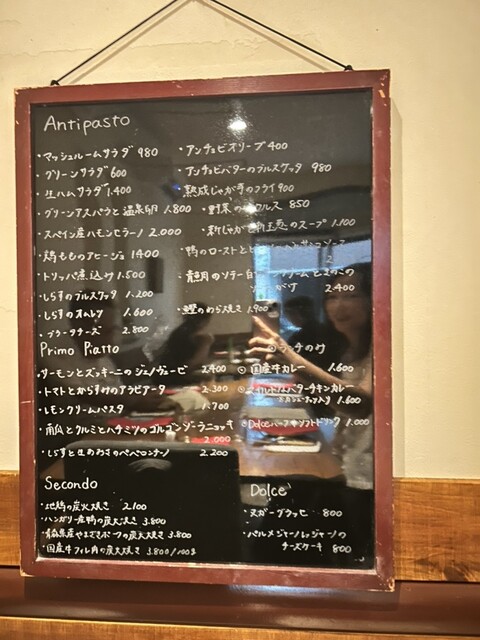 Antipasto
・マッシュルームサラダ 980
・グリーンサラダ 600
・生ハムサラダ 1.400
・グリーンアスパラと温泉卵 1.800
・スペイン産ハモンセラーノ 2.000
・鶏もものアヒージョ 1400
・トリッパ煮込み 1.500
・しらすのブルスケッタ 1.200
・しらすのオムレツ 1.600
・ブラータチーズ 2.800
・アンチョビオリーブ 400
・アンチョビバターのブルスケッタ 980
熟成じゃが芋のフライ 900
・野菜の ピクルス 850
・新じゃが 新玉葱のスープ 1.100
・鴨のローストと
ソース
のソテー 白
クリーム
2.400
・鰹のわら焼き 1.900
Primo Piatto
・サーモンとズッキーニのジェノヴェーゼ 2.400
・トマトとからすみのアラビアータ 2.300
・レモンクリームパスタ 1.700
・南瓜とクルミとハチミツのゴルゴンゾーラニョッキ
2.000
・しらすと生わさびのペペロンチーノ 2.200
◎ランチのみ
◎国産牛カレー 1.600
バターチキンカレー
※カシューナッツ入り 1.600
◎Dolceハーフ+ソフトドリンク 1.000
Secondo
・地鶏の炭火焼き 2.100
・ハンガリー産鴨の炭火焼き 3.800
・青森県産やまざきポークの炭火焼き 3.800
・国産牛フィレ肉の炭火焼き 3.800/100g
Dolce
・ヌガーグラッセ 800
・パルメジャーノレッジャーノの
チーズケーキ 800